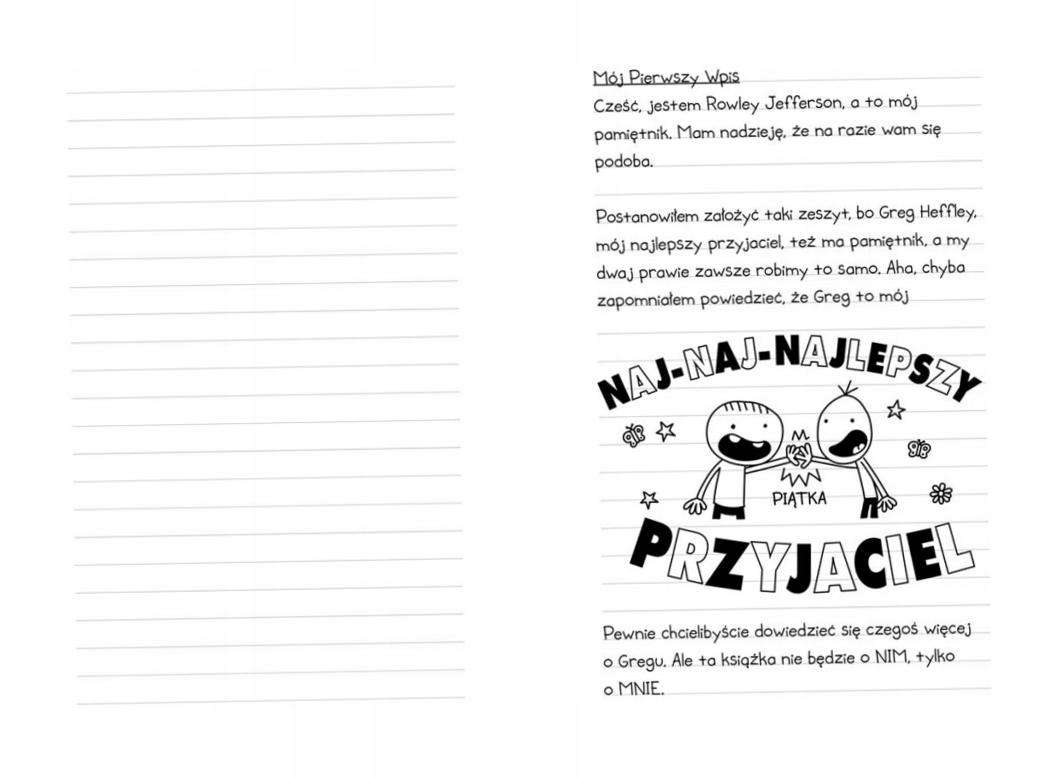 Mój Pierwszy Wpis
Cześć, jestem Rowley Jefferson, a to mój
pamiętnik. Mam nadzieję, że na razie wam się
podoba.
Postanowiłem założyć taki zeszyt, bo Greg Heffley,
mój najlepszy przyjaciel, też ma pamiętnik, a my
dwaj prawie zawsze robimy to samo. Aha, chyba
zapomniałem powiedzieć, że Greg to mój
NAJ-NAJ-NAJLEPSZY
PIĄTKA
PRZYJACIEL
Pewnie chcielibyście dowiedzieć się czegoś więcej
o Gregu. Ale ta książka nie będzie o NIM, tylko
o MNIE.